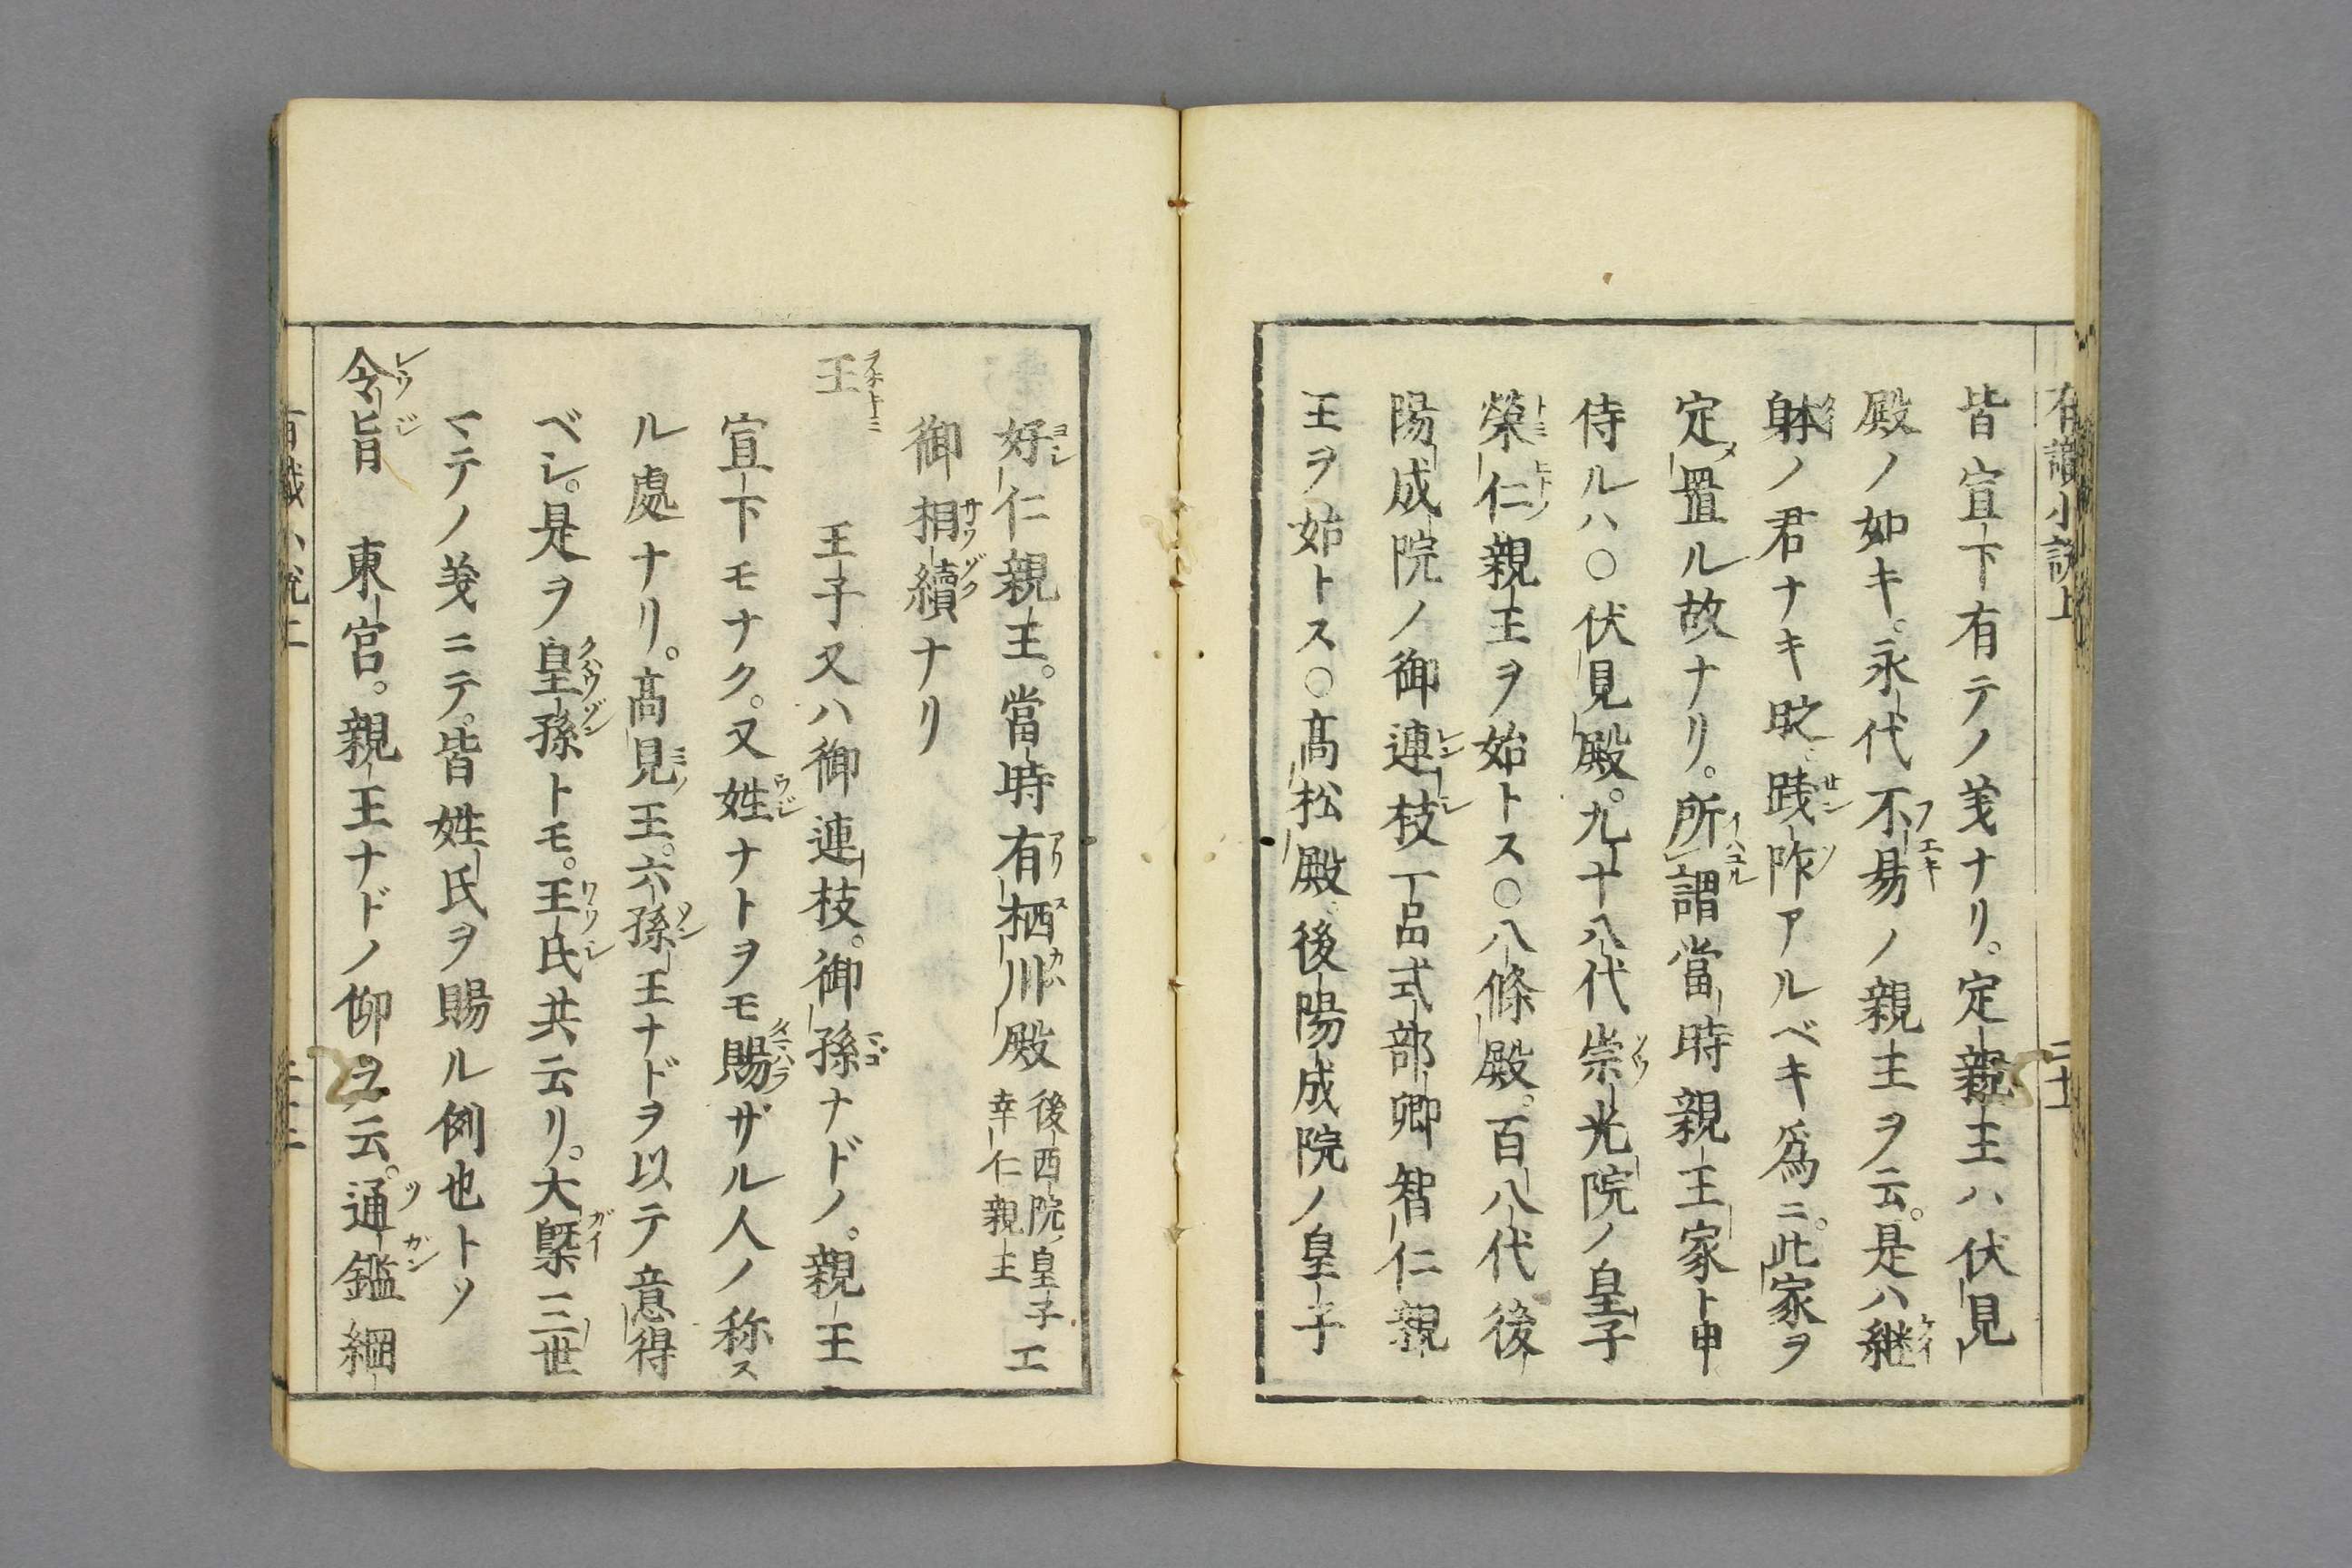 有識小説上
皆宣下有テノ義ナリ。定親王ハ伏見
殿ノ如キ。永代不易ノ親王ヲ云。是ハ継
躰ノ君ナキ時践祚アルベキ爲ニ。此家ヲ
定置ル故ナリ。所謂當時親王家ト申
侍ルハ○伏見殿。九十八代崇光院ノ皇子
榮仁親王ヲ始トス○八條殿。百八代後
陽成院ノ御連枝一品式部卿智仁親
王ヲ始トス○髙松殿後陽成院ノ皇子
好仁親王。當時有栖川殿後西院ノ皇子幸仁親王エ
御相續ナリ
王 王子又ハ御連枝。御孫ナドノ。親王
宣下モナク。又姓ナトヲモ賜ザル人ノ称ス
ル處ナリ。髙見王。六孫王ナドヲ以テ意得
ベシ。是ヲ皇孫トモ。王氏共云リ。大槩三世
マテノ義ニテ。皆姓氏ヲ賜ル例也トソ
令旨 東宮。親王ナドノ仰ヲ云。通鑑綱